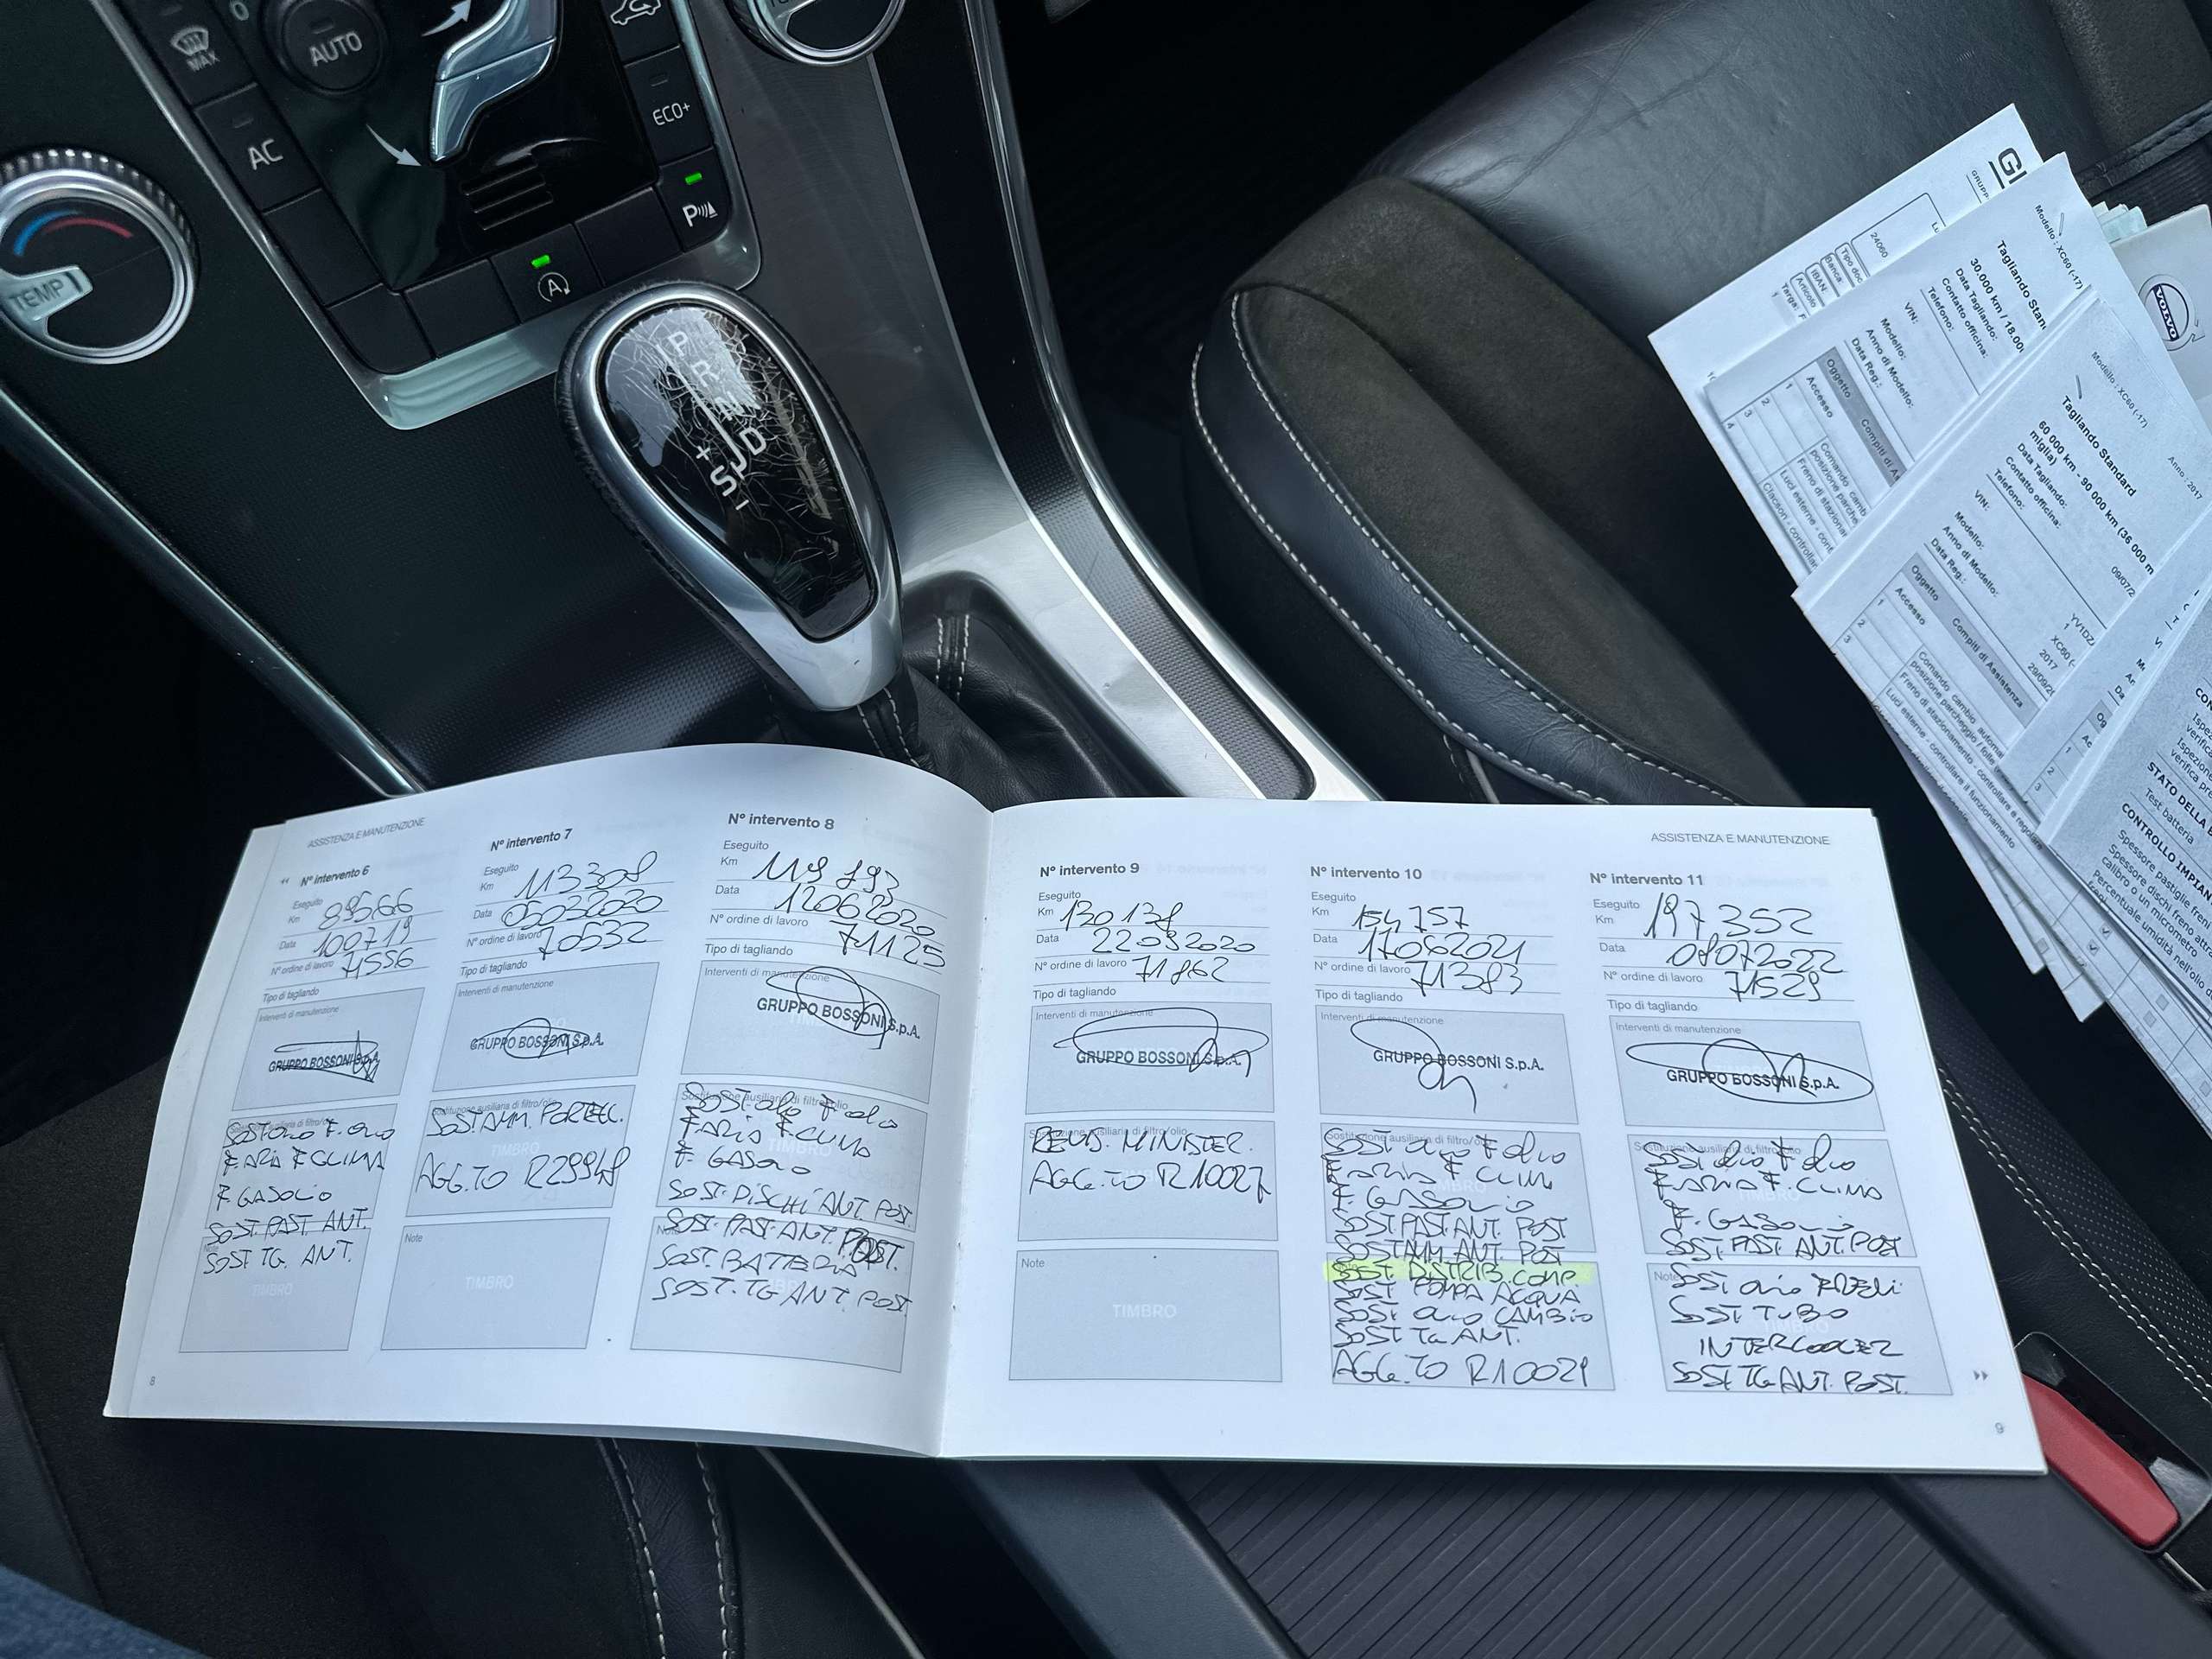 MAX
AUTO
AC
TEMP
ECO+
P
A
P
R
N
D
+
S
-
VOLVO
Modello : XC60 (-17)
Tagliando Stan
30.000 km / 18.00
Data Tagliando:
Contatto officina:
Telefono:
VIN:
Modello:
Anno di Modello:
Data Reg.:
Oggetto
Compiti di A
1
Accesso
Modello : XC60 (-17)
Anno : 2017
Tagliando Standard
60 000 km - 90 000 km (36 000 m
miglia)
Data Tagliando:
09/07/2
Contatto officina:
Telefono:
VIN:
YV1DZ
Modello:
XC60 (-
Anno di Modello:
2017
Data Reg.:
29/09/2
Oggetto
Compiti di Assistenza
1
Accesso
2
Comando cambio automa
posizione parcheggio / folle
3
Freno di stazionamento - controllare e regolare
Luci esterne - controllare il funzionamento
STATO DELLA
Test batteria
CONTROLLO IMPIAN
Spessore pastiglie freno
Spessore dischi freno attra
calibro o un micrometro
Percentuale umidità nell'olio d
ASSISTENZA E MANUTENZIONE
N° intervento 6
Eseguito
Km 89566
Data 100719
N° ordine di lavoro 71556
Tipo di tagliando
Interventi di manutenzione
GRUPPO BOSSONI S.p.A.
SOST OLIO F. OLIO
F. ARIA F CLIMA
F. GASOLIO
SOST. PAST ANT.
SOST TG. ANT.
TIMBRO
8
N° intervento 7
Eseguito
Km 113308
Data 05032020
N° ordine di lavoro 70532
Tipo di tagliando
Interventi di manutenzione
GRUPPO BOSSONI S.p.A.
Sostituzione ausiliaria di filtro/olio
SOST. AMM. PORTELL.
TIMBRO
AGG.TO R29948
Note
TIMBRO
N° intervento 8
Eseguito
Km 119 893
Data 12062020
N° ordine di lavoro 71125
Tipo di tagliando
Interventi di manutenzione
GRUPPO BOSSONI S.p.A.
Sostituzione ausiliaria di filtro/olio
SOST OLIO F OLIO
F ARIA F CLIMA
F. GASOLIO
SOST. DISCHI ANT. POST.
SOST. PAST. ANT. POST.
SOST. BATTERIA
SOST. TG ANT. POST.
ASSISTENZA E MANUTENZIONE
N° intervento 9
Eseguito
Km 130 138
Data 22092020
N° ordine di lavoro 71862
Tipo di tagliando
Interventi di manutenzione
GRUPPO BOSSONI S.p.A.
REVIS. MINISTER.
AGG.TO R10027
Note
TIMBRO
N° intervento 10
Eseguito
Km 154 757
Data 17062021
N° ordine di lavoro 71383
Tipo di tagliando
Interventi di manutenzione
GRUPPO BOSSONI S.p.A.
Sostituzione ausiliaria di filtro/olio
SOST OLIO F OLIO
F ARIA F CLIM
F. GASOLIO
SOST. PAST ANT. POST
SOST AMM. ANT. POST
SOST. DISTRIB. COMP.
SOST POMPA ACQUA
SOST OLIO CAMBIO
SOST TG ANT.
AGG.TO R10029
N° intervento 11
Eseguito
Km 197 352
Data 08072022
N° ordine di lavoro 71529
Tipo di tagliando
Interventi di manutenzione
GRUPPO BOSSONI S.p.A.
Sostituzione ausiliaria di filtro/olio
SOST OLIO F OLIO
F ARIA F. CLIMA
F. GASOLIO
SOST. PAST. ANT. POST
Note
SOST OLIO FRENI
SOST TUBO
INTERCOOLER
SOST TG ANT. POST.
9